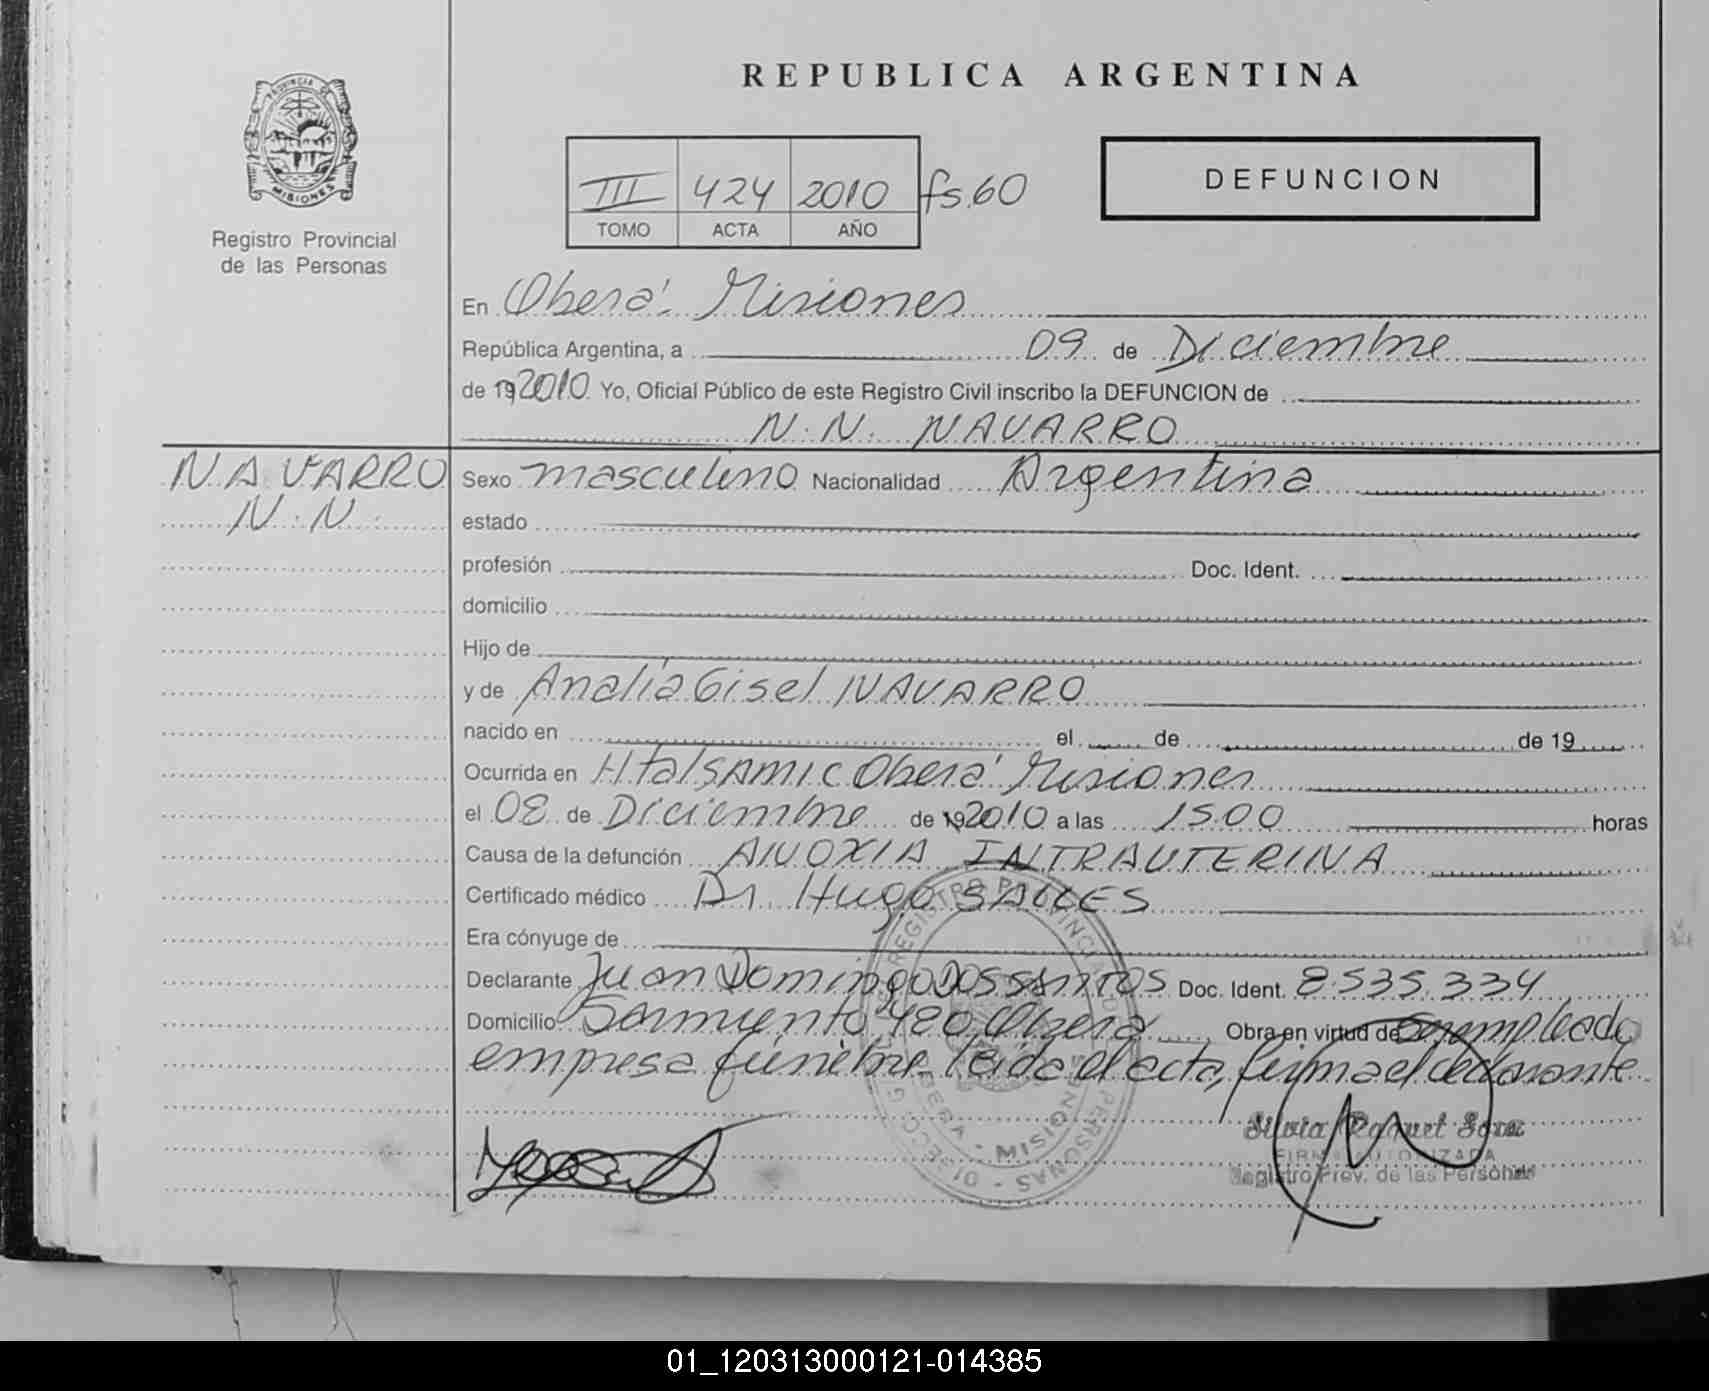 REPUBLICA ARGENTINA
PROVINCIA DE
MISIONES
Registro Provincial
de las Personas
III 424 2010 fs.60
TOMO ACTA AÑO
DEFUNCION
En Oberá. Misiones
República Argentina, a 09 de Diciembre
de 19 2010. Yo, Oficial Público de este Registro Civil inscribo la DEFUNCION de
N. N. NAVARRO
NAVARRO
N. N.
Sexo masculino Nacionalidad Argentina
estado
profesión Doc. Ident.
domicilio
Hijo de
y de Analía Gisel NAVARRO
nacido en el de de 19
Ocurrida en Htal SAMIC Oberá Misiones
el 08 de Diciembre de 19 2010 a las 15.00 horas
Causa de la defunción ANOXIA INTRAUTERINA
Certificado médico Dr. Hugo SALLES
Era cónyuge de
Declarante Juan Domingo DOS SANTOS Doc. Ident. 8.535.334
Domicilio Sarmiento 420 Oberá Obra en virtud de ser empleado
empresa fúnebre. Leída el acta, firma el declarante
REGISTRO PROVINCIAL DE LAS PERSONAS
OBERA - MISIONES
Silvia Raquel
FIRMA AUTORIZADA
Registro Prov. de las Personas
01_120313000121-014385